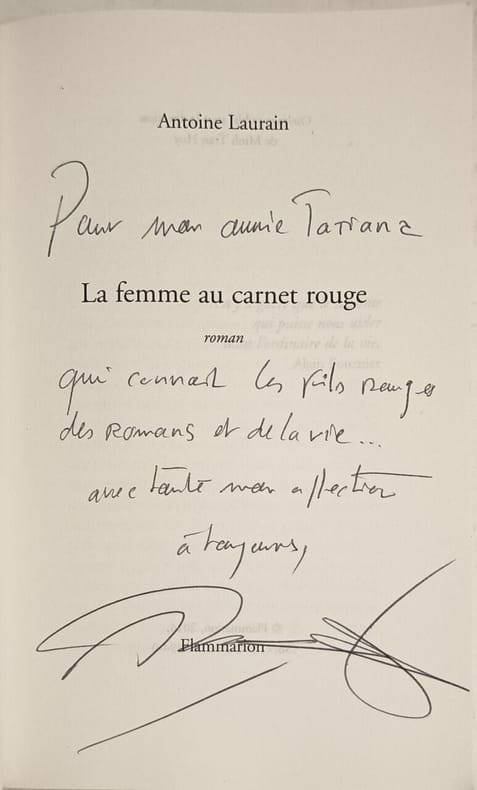 Antoine Laurain
Pour mon amie Tatiana
La femme au carnet rouge
roman
qui connait les fils rouges
des romans et de la vie...
avec toute mon affection
à toujours,
Flammarion